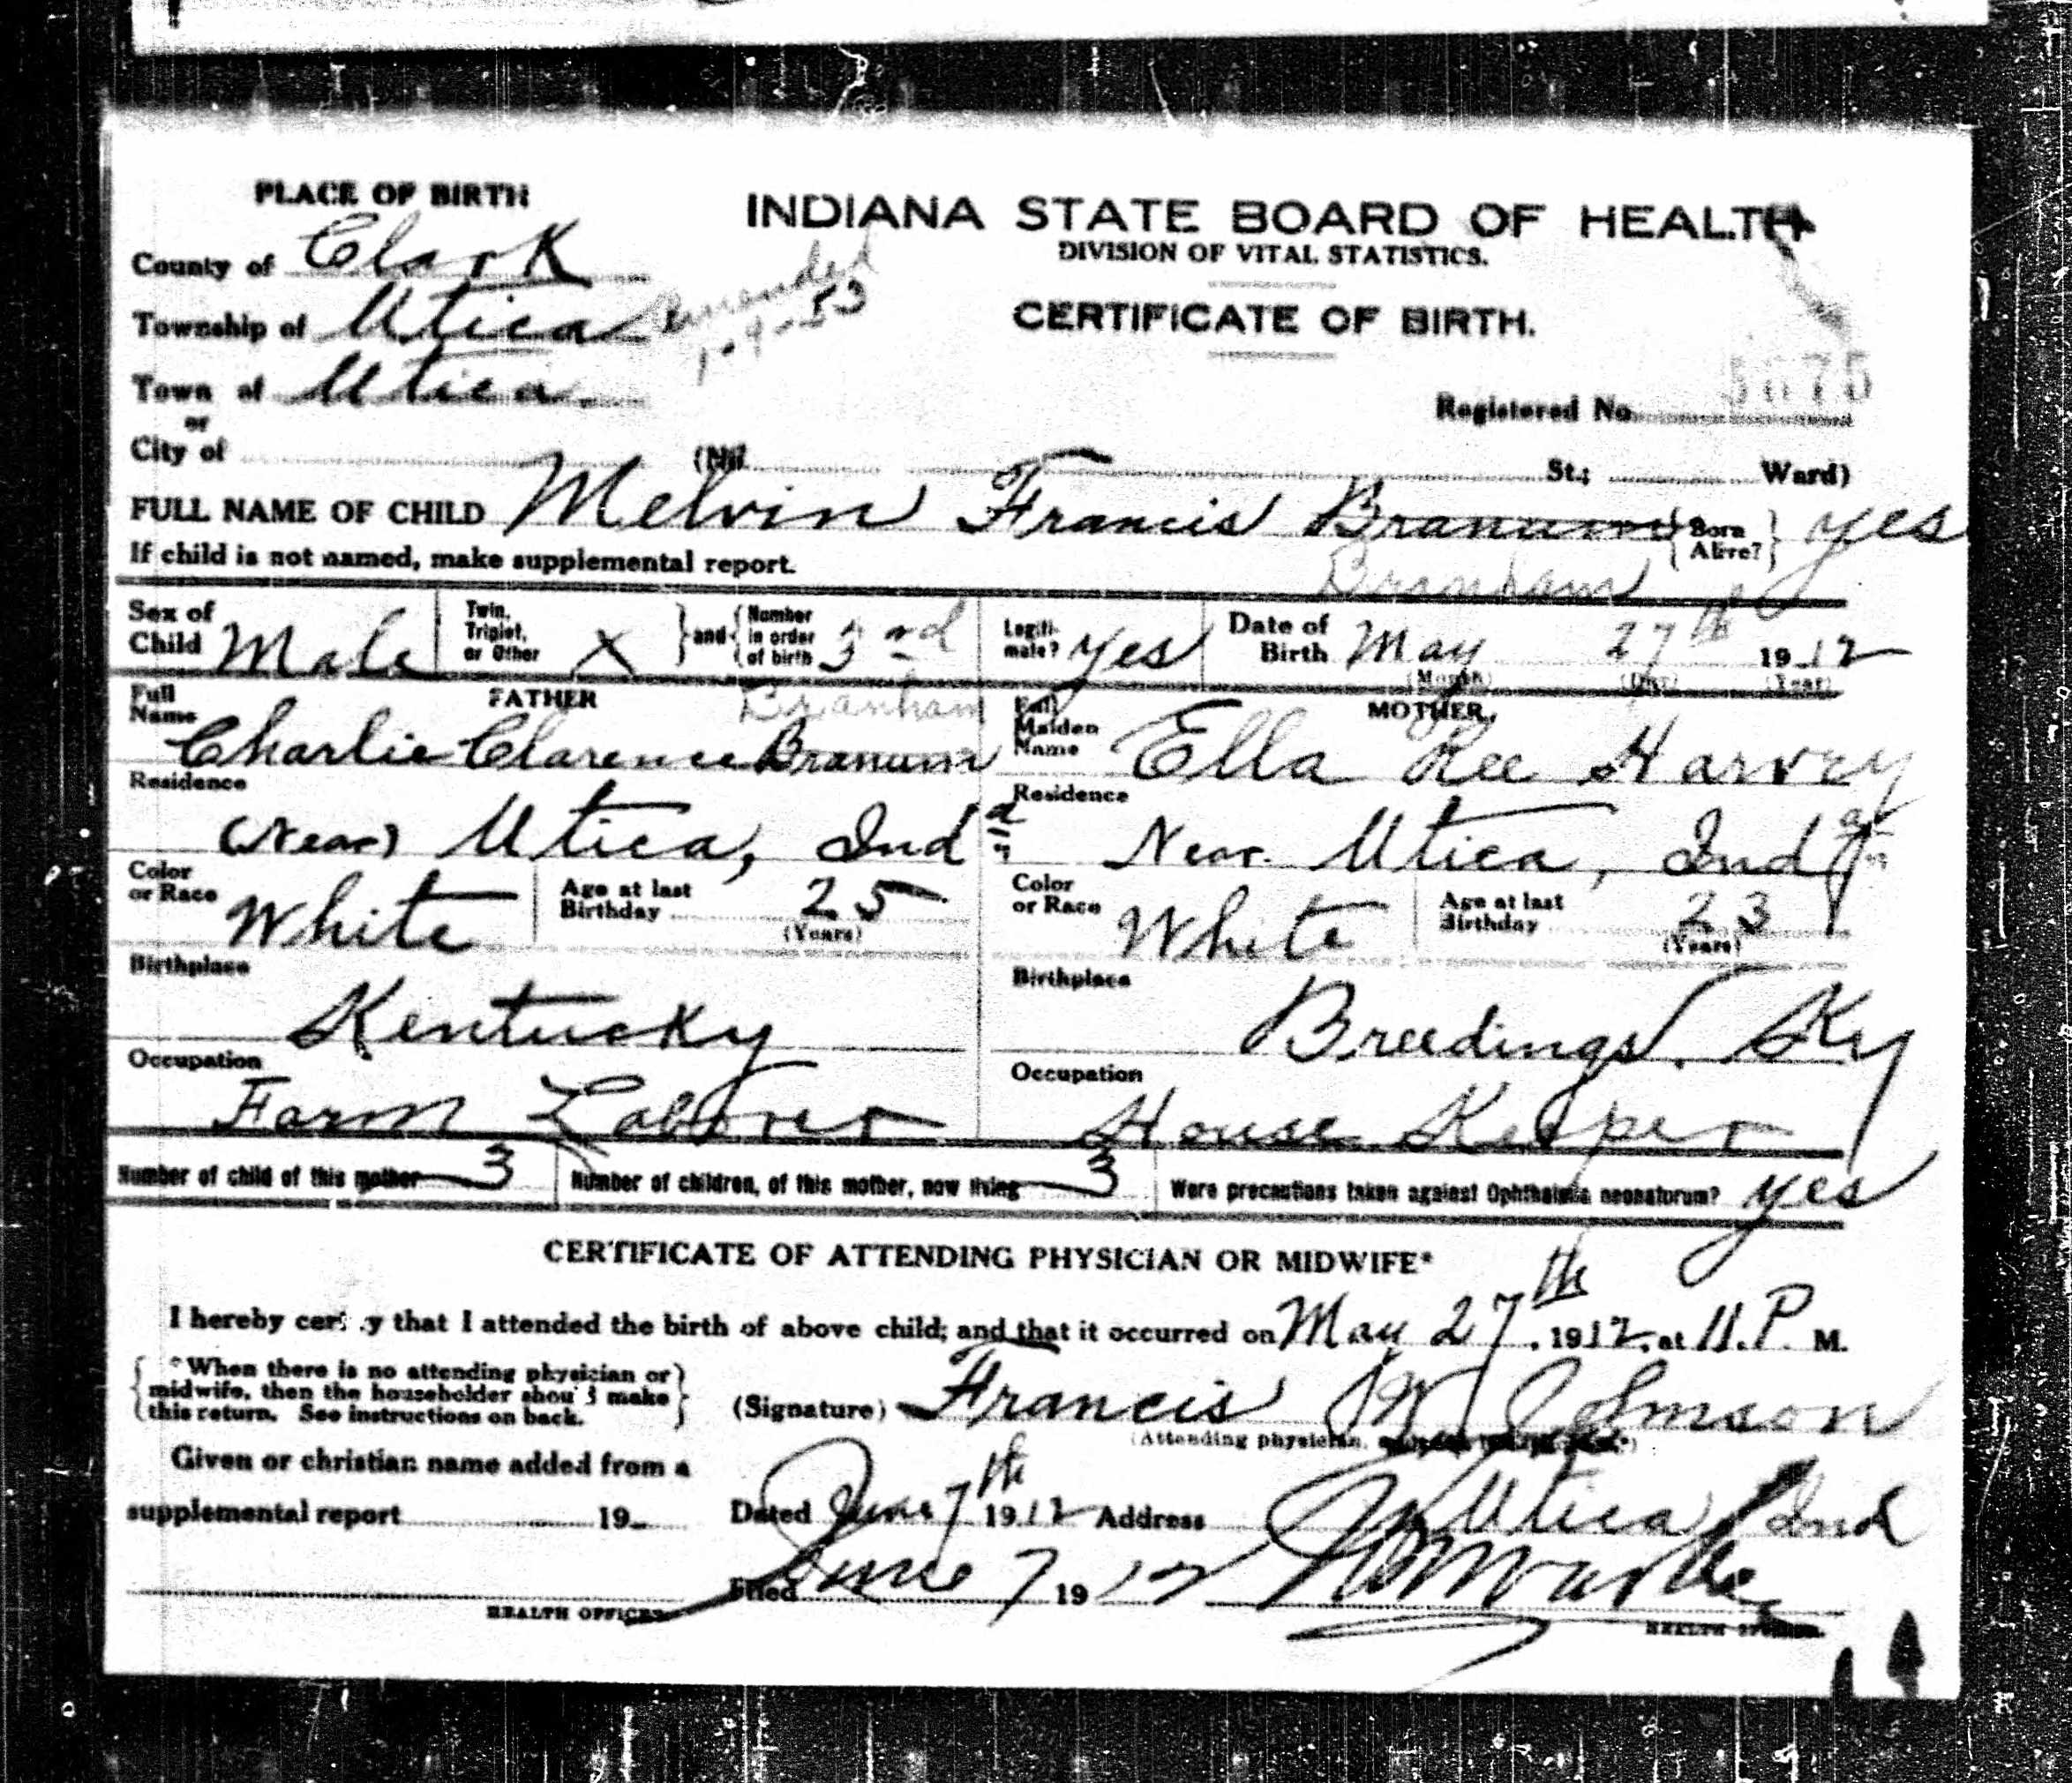 PLACE OF BIRTH
INDIANA STATE BOARD OF HEALTH
DIVISION OF VITAL STATISTICS.
CERTIFICATE OF BIRTH.
County of Clark
Township of Utica
amended
1-9-53
Town of Utica
or
City of (No. St.; Ward)
Registered No. 5675
FULL NAME OF CHILD Melvin Francis Branum Born Alive? yes
Branham
If child is not named, make supplemental report.
Sex of Child Male Twin, Triplet, or Other X and Number in order of birth 3rd Legitimate? yes Date of Birth May 27th 1912
(Month) (Day) (Year)
FATHER
Full Name Charlie Clarence Branum
Branham
Residence
(Near) Utica, Ind
Color or Race White Age at last Birthday 25 (Years)
Birthplace
Kentucky
Occupation
Farm Laborer
MOTHER
Full Maiden Name Ella Lee Harvey
Residence
Near Utica, Ind
Color or Race White Age at last Birthday 23 (Years)
Birthplace
Breedings, Ky
Occupation
House Keeper
Number of child of this mother 3 Number of children, of this mother, now living 3 Were precautions taken against Ophthalmia neonatorum? yes
CERTIFICATE OF ATTENDING PHYSICIAN OR MIDWIFE*
I hereby certify that I attended the birth of above child; and that it occurred on May 27th, 1912, at 11.P. M.
*When there is no attending physician or
midwife, then the householder should make
this return. See instructions on back.
(Signature) Francis M Johnson
(Attending physician,
Given or christian name added from a
supplemental report 19
Dated June 7th 1912 Address Utica Ind
Filed June 7 1912
HEALTH OFFICER
HEALTH OFFICER.